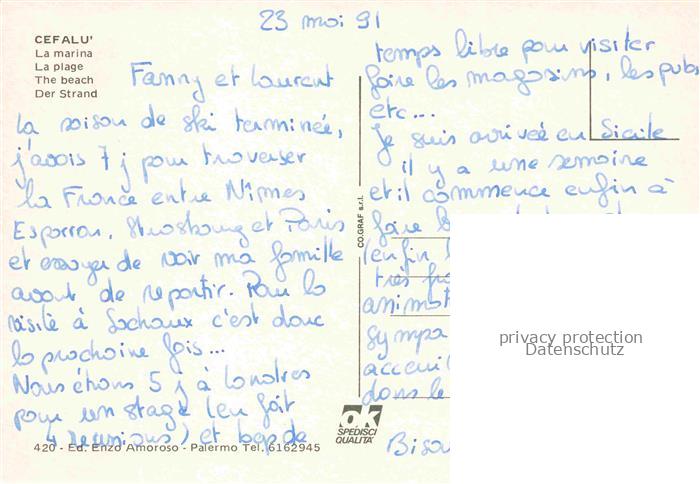 23 mai 91
CEFALU'
La marina
La plage
The beach
Der Strand
Fanny et Laurent
la saison de ski terminée,
j'avais 7 j pour traverser
la France entre Nîmes
Esparron, Strasbourg et Paris
et essayer de voir ma famille
avant de repartir. Pour la
visite à Sochaux c'est donc
la prochaine fois...
Nous étions 5 j à Londres
pour un stage (en fait
4 réunions) et bcp de
temps libre pour visiter
faire les magasins, les pubs
etc...
Je suis arrivée en Sicile
il y a une semaine
et il commence enfin à
faire
(enfin
très
sympa
dans le
CO.GRAF s.r.l.
ok
SPEDISCI
QUALITA'
420 - Ed. Enzo Amoroso - Palermo Tel. 6162945
privacy protection
Datenschutz